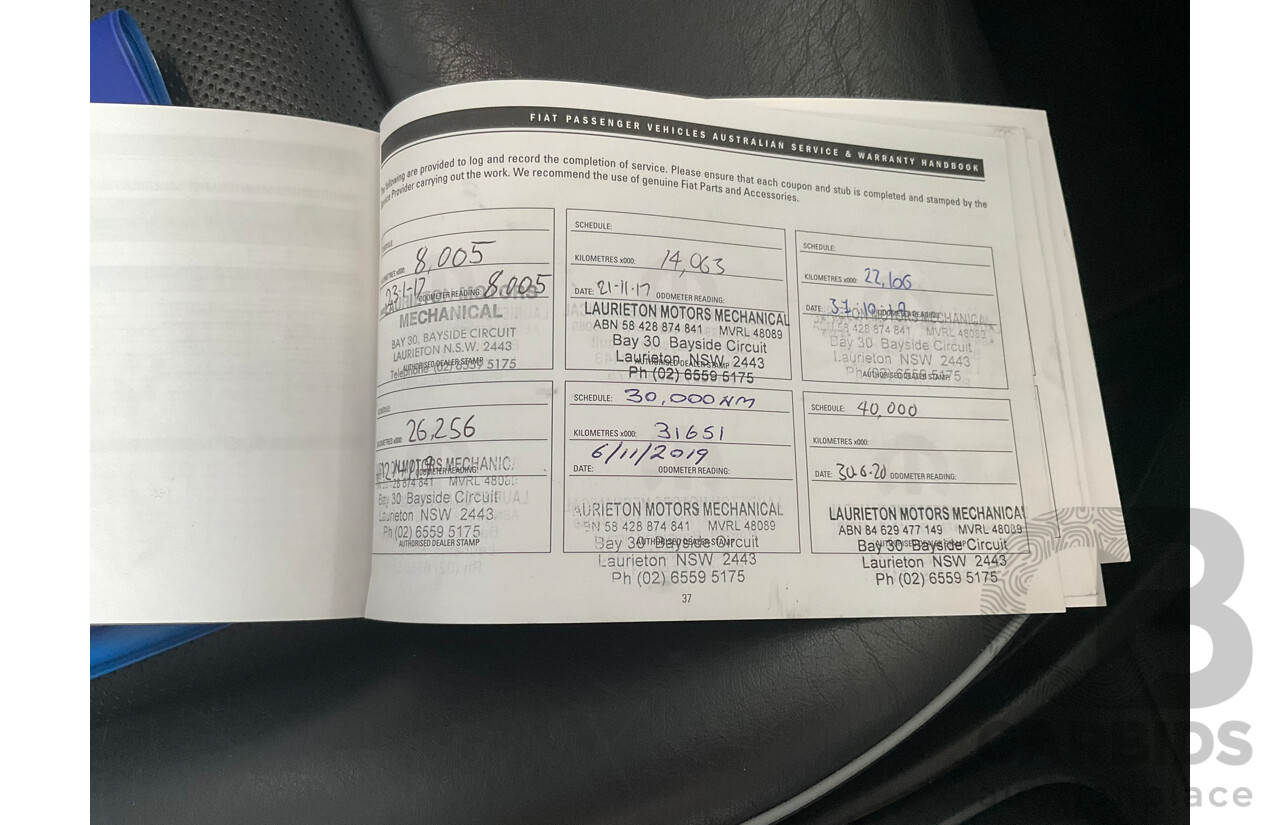 FIAT PASSENGER VEHICLES AUSTRALIAN SERVICE & WARRANTY HANDBOOK
following are provided to log and record the completion of service. Please ensure that each coupon and stub is completed and stamped by the
Provider carrying out the work. We recommend the use of genuine Fiat Parts and Accessories.
8,005
KILOMETRES x000:
23-1-17 ODOMETER READING: 8,005
MECHANICAL
BAY 30, BAYSIDE CIRCUIT
LAURIETON N.S.W. 2443
AUTHORISED DEALER STAMP
Telephone (02) 6559 5175
SCHEDULE:
KILOMETRES x000: 14,063
DATE: 21-11-17 ODOMETER READING:
LAURIETON MOTORS MECHANICAL
ABN 58 428 874 841 MVRL 48089
Bay 30 Bayside Circuit
Laurieton NSW 2443
AUTHORISED DEALER STAMP
Ph (02) 6559 5175
SCHEDULE:
KILOMETRES x000: 22,106
DATE: ODOMETER READING:
MOTORS MECHANICAL
58 428 874 841 MVRL 48089
Bay 30 Bayside Circuit
Laurieton NSW 2443
Ph (02) 6559 5175
AUTHORISED DEALER STAMP
26,256
KILOMETRES x000:
MOTORS MECHANIC
ODOMETER READING:
28 874 841 MVRL 4808
Bay 30 Bayside Circuit
Laurieton NSW 2443
Ph (02) 6559 5175
AUTHORISED DEALER STAMP
SCHEDULE: 30,000
KILOMETRES x000: 31651
6/11/2019
DATE: ODOMETER READING:
LAURIETON MOTORS MECHANICAL
58 428 874 841 MVRL 48089
AUTHORISED DEALER STAMP
Bay 30 Bayside Circuit
Laurieton NSW 2443
Ph (02) 6559 5175
SCHEDULE: 40,000
KILOMETRES x000:
DATE: 30-6-20 ODOMETER READING:
LAURIETON MOTORS MECHANICAL
ABN 84 629 477 149 MVRL 48089
AUTHORISED DEALER STAMP
Bay 30 Bayside Circuit
Laurieton NSW 2443
Ph (02) 6559 5175
37
CARBIDS